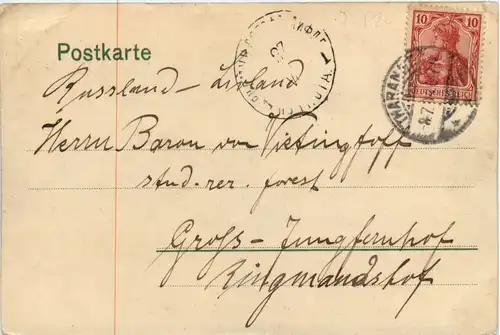 10 10
DEUTSCHES REICH
THARANDT
Postkarte
Russland - Livland
Herrn Baron von Vietingfoff
stud. rer. forest
Gross - Jungfernhof
Ringmundshof